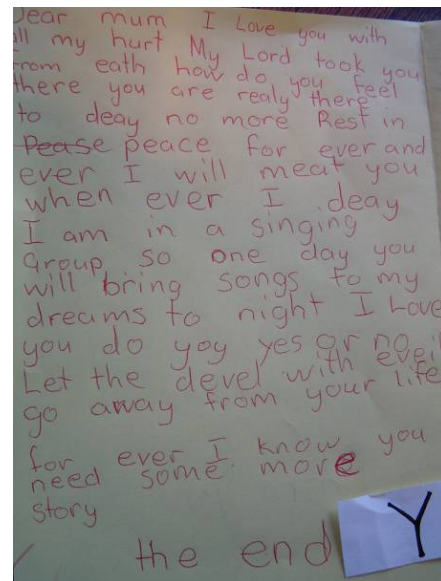 Dear mum I Love you with
all my hurt My Lord took you
from eath how do you feel
there you are realy there
to deay no more Rest in
Pease peace for ever and
ever I will meat you
when ever I deay
I am in a singing
Group so one day you
will bring songs to my
dreams to night I Love
you do yoy yes or no
Let the devel with eveil
go away from your life
for ever I know you
need some more
story
the end
Y